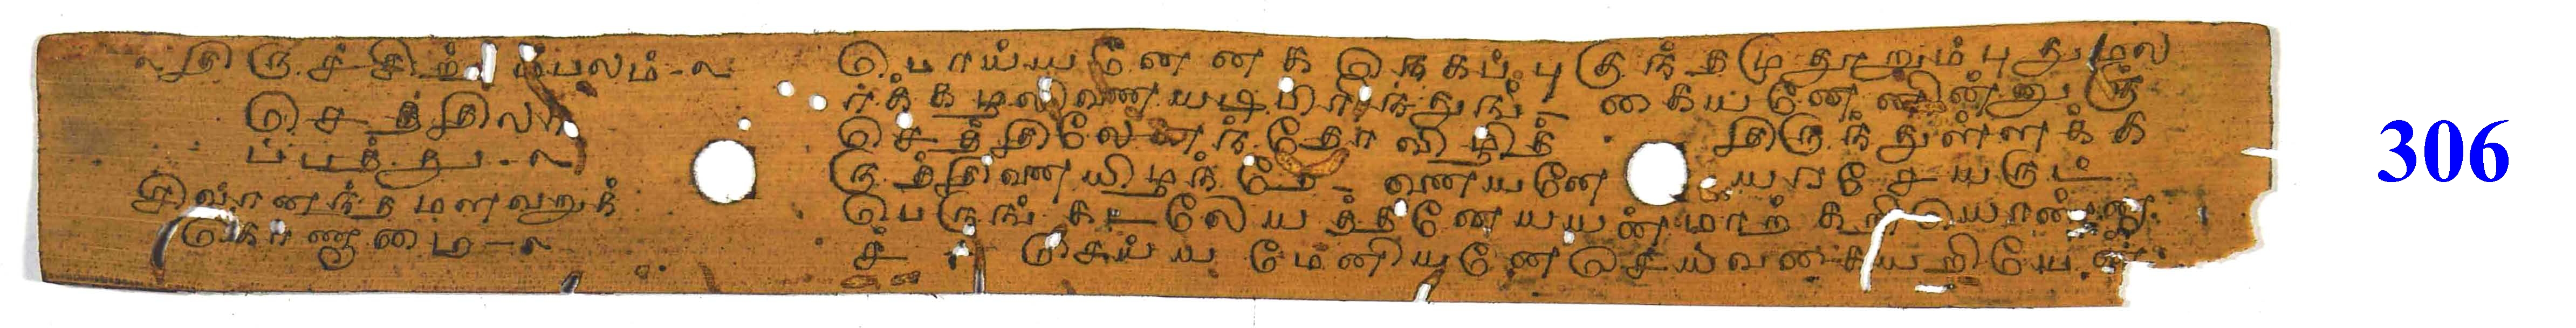 திருச்சிற்றம்பலம் -
செத்திலா
ப்பத்து -
சிவானந்தமளவறுக்
கொணாமை -
பொய்யனேனக நெகப்புகுந்தமுதூறும்புதுமல
ர்க்கழலிணையடிபிரிந்துங் - கையனேனின்னுஞ்
செத்திலேனந்தோ விழித் திருந்துள்ளக்க
ருத்திணையிழந்தேன் - ஐயனே யரசேயருட்
பெருங்கடலேயத்தனேயயன்மாற்கறியொண்ணா
ச் - செய்யமேனியனேசெய்வகையறியேன்
306